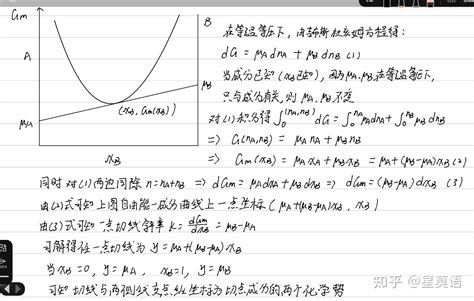 Gm
B
A
μB
μA
(xB, Gm(xB))
xB
在等温等压下, 由吉布斯杜亥姆方程得:
dG = μA dnA + μB dnB (1)
当成分已知 (xB已知), 因为μA、μB在等温等压下,
只与成分有关, 则 μA、μB 不变
对(1)积分得 ∫₀^(nA,nB) dG = ∫₀^nA μA dnA + ∫₀^nB μB dnB
⇒ G(nA,nB) = μA nA + μB nB
⇒ Gm(xB) = μA xA + μB xB = μA+(μB-μA)xB (2)
同时对(1)两边同除 n=nA+nB ⇒ dGm = μA dxA + μB dxB ⇒ dGm = (μB-μA) dxB (3)
由(2)式可知上图自由能-成分曲线上一点坐标 (μA+(μB-μA)xB , xB)
由(3)式可知一点切线斜率 K = dGm/dxB = μB-μA
可解得任一点切线为 y = μA+(μB-μA)xB
当 xB=0, y=μA , xB=1, y=μB
可知切线与两侧线交点纵坐标为切点成分的两个化学势
知乎 @星莫语